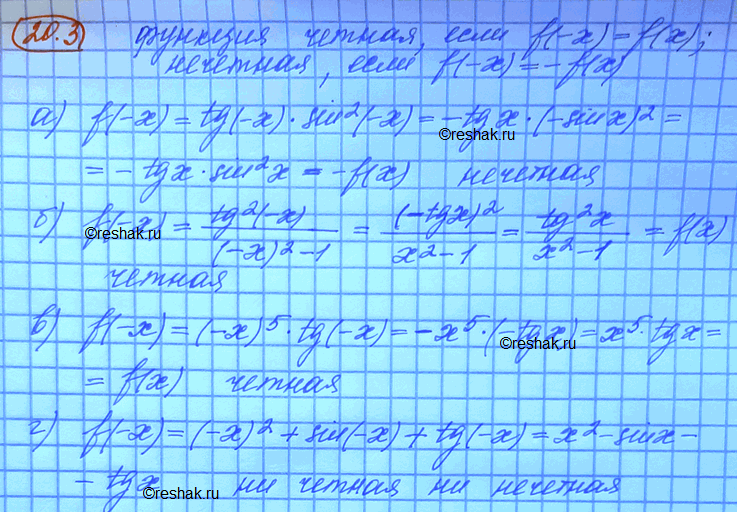 20.3 функция четная, если f(-x) = f(x);
нечетная, если f(-x) = - f(x)
а) f(-x) = tg(-x) · sin²(-x) = -tgx · (-sinx)² =
©reshak.ru
= - tgx · sin²x = -f(x) нечетная
б) f(-x) = tg²(-x) / (-x)² - 1 = (-tgx)² / x² - 1 = tg²x / x² - 1 = f(x)
©reshak.ru
четная
в) f(-x) = (-x)⁵ · tg(-x) = -x⁵ · (-tgx) = x⁵ · tgx =
©reshak.ru
= f(x) четная
г) f(-x) = (-x)² + sin(-x) + tg(-x) = x² - sinx -
- tgx ни четная ни нечетная
©reshak.ru